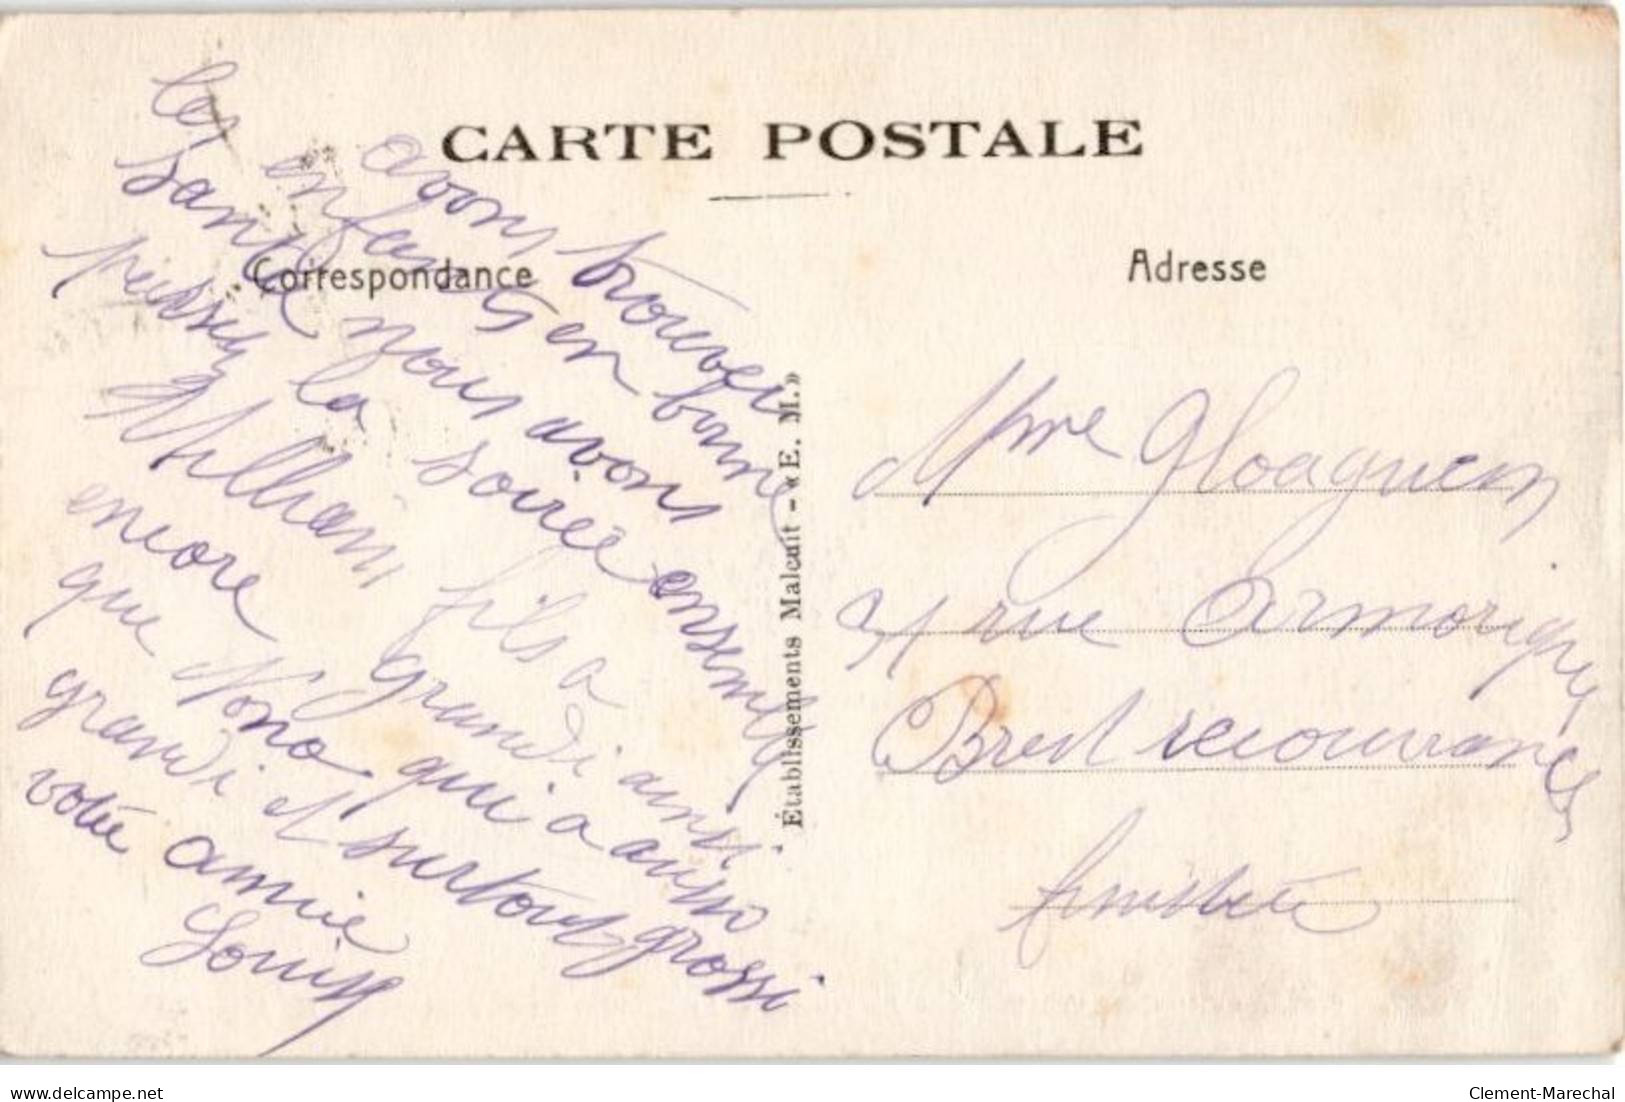 CARTE POSTALE
Correspondance
Adresse
avons trouver
les enfants en bonne
santé nous avons
la soirée ensemble
fils a grandi aussi
encore
que Nono qui a aussi
grandi et surtout grossi
votre amie
Louise
Établissements Malcuit - « E. M. »
Mme Gloaguen
rue Armorique
Brest recouvrance
finistère
delcampe.net
Clement-Marechal